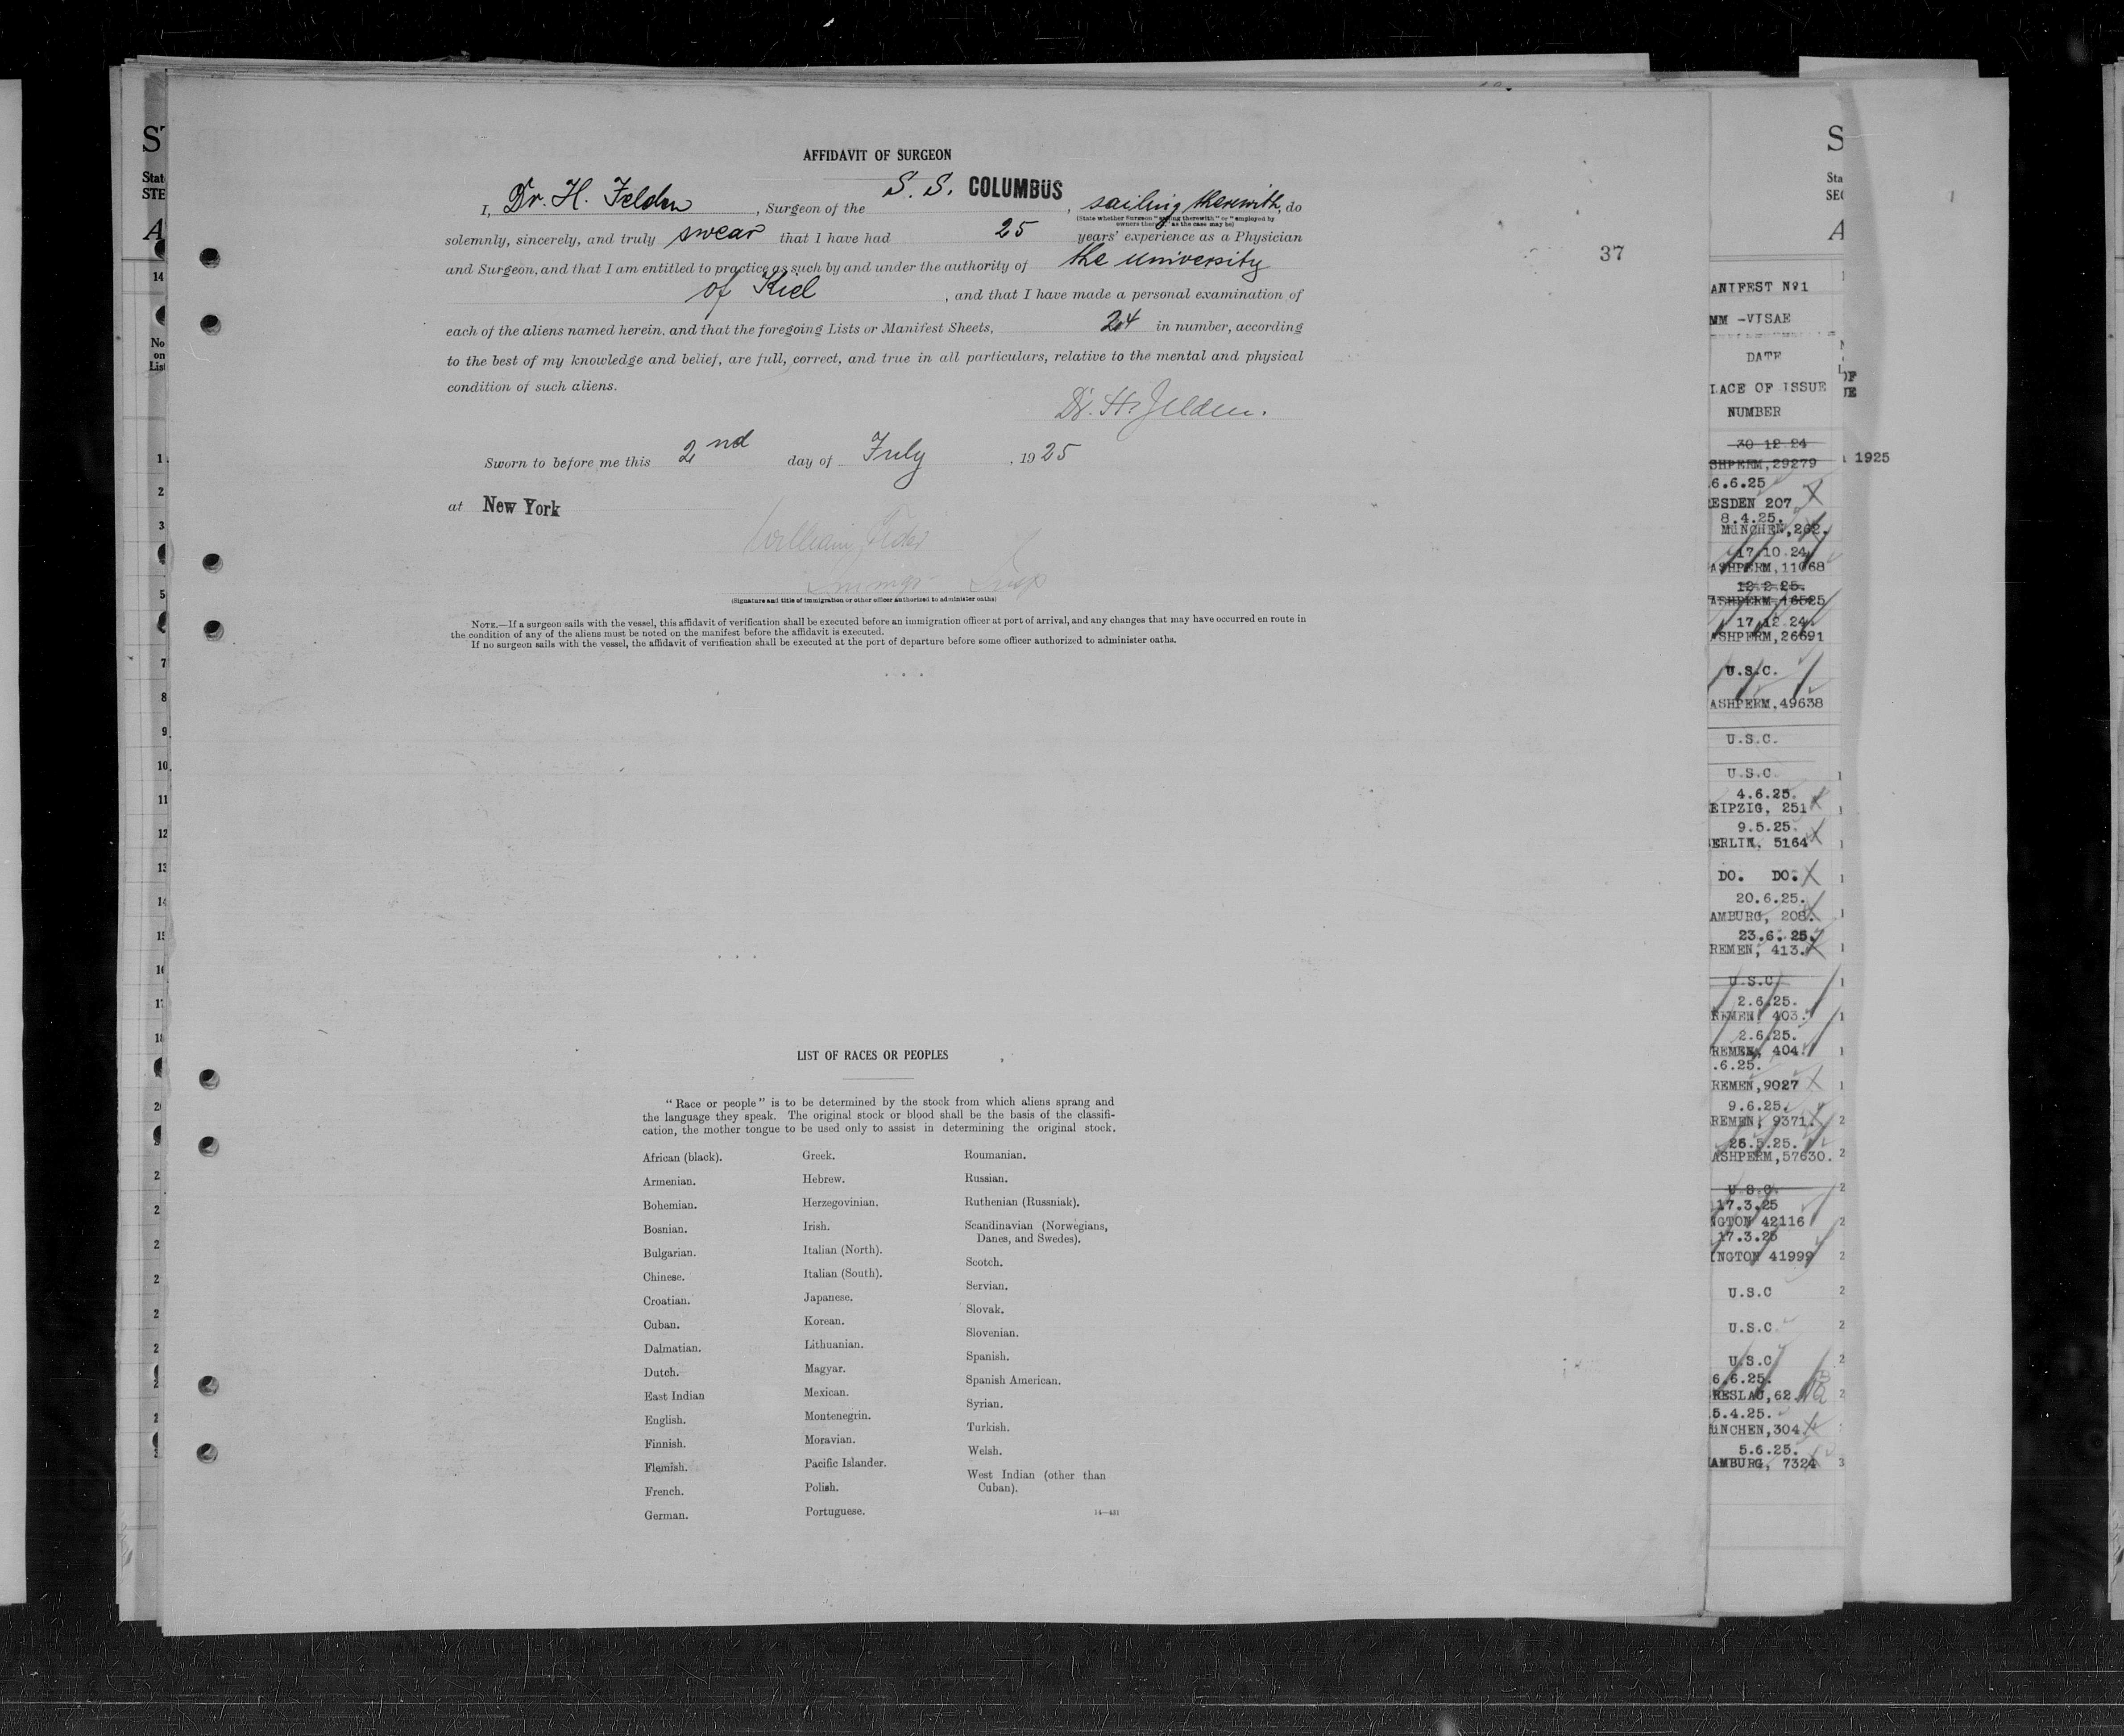 AFFIDAVIT OF SURGEON
I, Dr. H. Felden, Surgeon of the S. S. COLUMBUS, sailing therewith, do
(State whether Surgeon "sailing therewith" or "employed by
owners thereof," as the case may be)
solemnly, sincerely, and truly swear that I have had 25 years' experience as a Physician
and Surgeon, and that I am entitled to practice as such by and under the authority of the university
of Kiel, and that I have made a personal examination of
each of the aliens named herein, and that the foregoing Lists or Manifest Sheets, 24 in number, according
to the best of my knowledge and belief, are full, correct, and true in all particulars, relative to the mental and physical
condition of such aliens.
Dr. H. Felden.
Sworn to before me this 2nd day of July, 1925
at New York
William
Immgr Insp
(Signature and title of immigration or other officer authorized to administer oaths)
NOTE.—If a surgeon sails with the vessel, this affidavit of verification shall be executed before an immigration officer at port of arrival, and any changes that may have occurred en route in
the condition of any of the aliens must be noted on the manifest before the affidavit is executed.
If no surgeon sails with the vessel, the affidavit of verification shall be executed at the port of departure before some officer authorized to administer oaths.
37
LIST OF RACES OR PEOPLES
"Race or people" is to be determined by the stock from which aliens sprang and
the language they speak. The original stock or blood shall be the basis of the classifi-
cation, the mother tongue to be used only to assist in determining the original stock.
African (black).
Armenian.
Bohemian.
Bosnian.
Bulgarian.
Chinese.
Croatian.
Cuban.
Dalmatian.
Dutch.
East Indian
English.
Finnish.
Flemish.
French.
German.
Greek.
Hebrew.
Herzegovinian.
Irish.
Italian (North).
Italian (South).
Japanese.
Korean.
Lithuanian.
Magyar.
Mexican.
Montenegrin.
Moravian.
Pacific Islander.
Polish.
Portuguese.
Roumanian.
Russian.
Ruthenian (Russniak).
Scandinavian (Norwegians,
Danes, and Swedes).
Scotch.
Servian.
Slovak.
Slovenian.
Spanish.
Spanish American.
Syrian.
Turkish.
Welsh.
West Indian (other than
Cuban).
14—431
ANIFEST No1
MM -VISAE
DATE
LACE OF ISSUE
NUMBER
30 12 24
SHPERM, 29279
6.6.25
ESDEN 207
8.4.25.
MüNCHEN, 262.
17.10 24
ASHPERM, 11068
12.2.25.
ASHPERM, 16525
17.12 24.
ASHPERM, 26691
U.S.C.
ASHPERM, 49638
U.S.C.
U.S.C.
4.6.25.
EIPZIG, 251
9.5.25.
ERLIN, 5164
DO. DO.
20.6.25.
AMBURG, 208.
23.6.25.
REMEN, 413.
U.S.C
2.6.25.
REMEN, 403.
2.6.25.
REMEN, 404.
.6.25.
REMEN, 9027
9.6.25.
REMEN, 9371.
26.5.25.
ASHPERM, 57630.
U.S.C.
17.3.25
NGTON 42116
17.3.25
INGTON 41999
U.S.C
U.S.C.
U.S.C
6.6.25.
RESLAU, 62.
5.4.25.
üNCHEN, 304
5.6.25.
AMBURG, 7324
1925